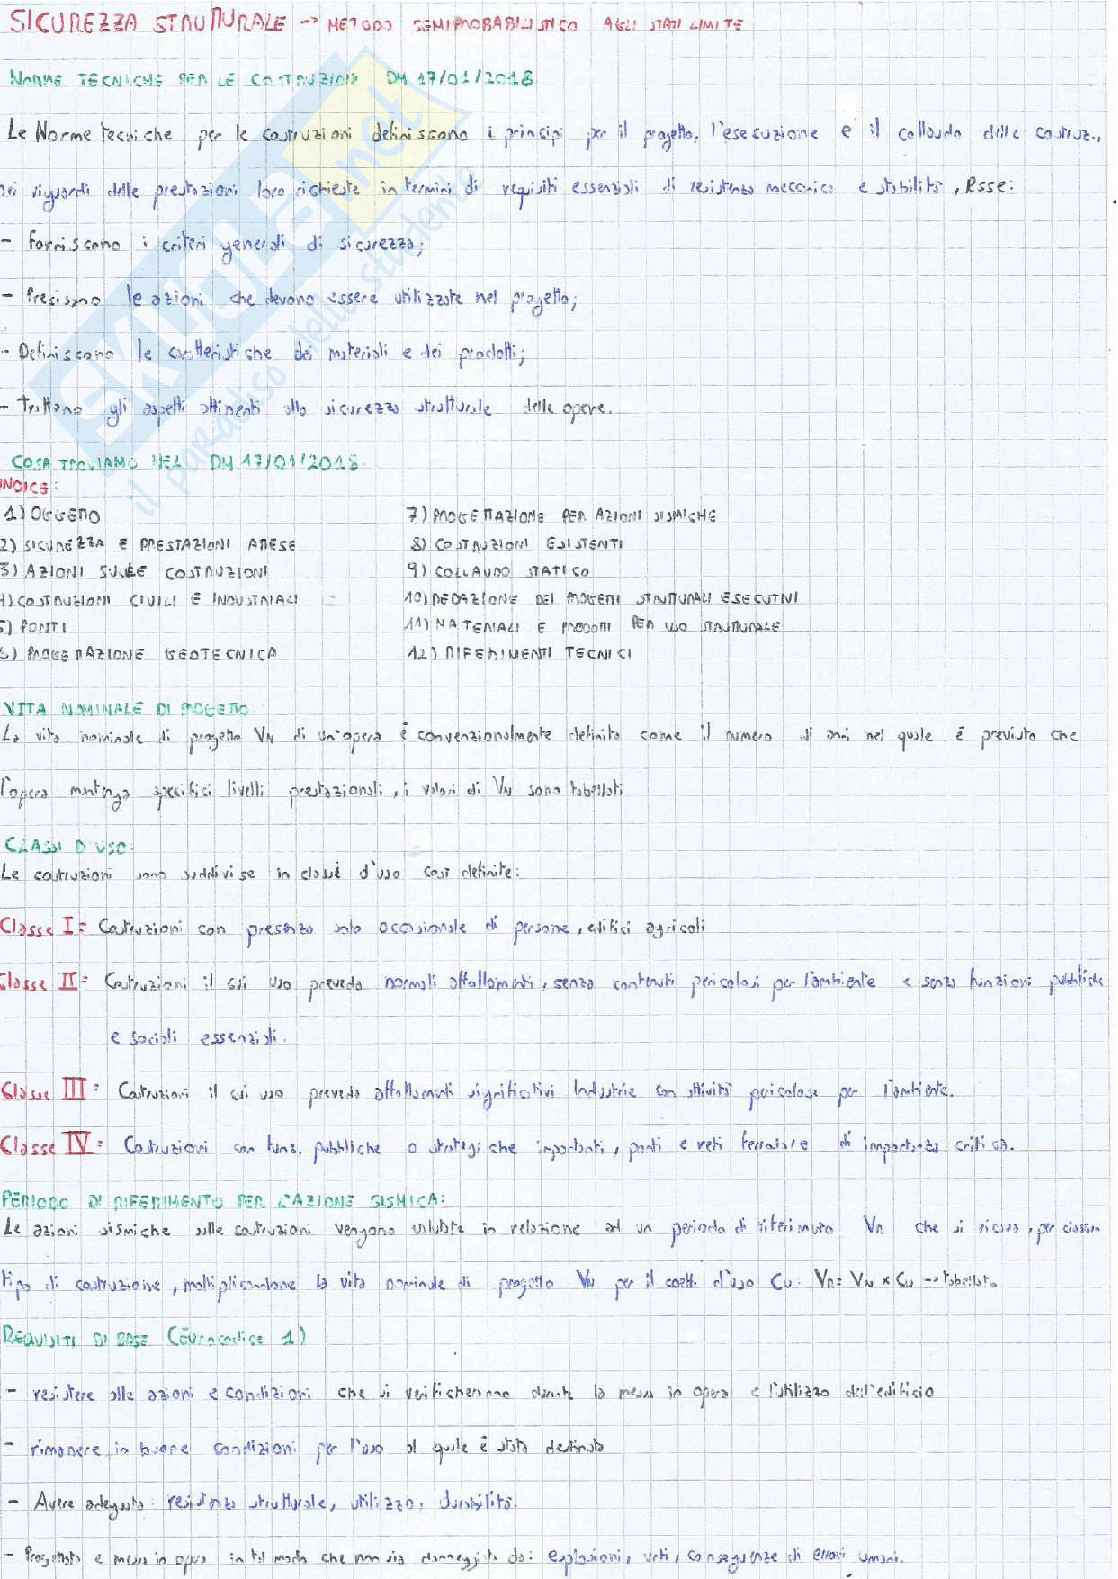 SICUREZZA STRUTTURALE -> METODO SEMIPROBABILISTICO AGLI STATI LIMITE
NORME TECNICHE PER LE COSTRUZIONI DM 17/01/2018
Le Norme tecniche per le costruzioni definiscono i principi per il progetto, l'esecuzione e il collaudo delle costruz.,
nei riguardi delle prestazioni loro richieste in termini di requisiti essenziali di resistenza meccanica e stabilità, Esse:
- Forniscono i criteri generali di sicurezza;
- Precisano le azioni che devono essere utilizzate nel progetto;
- Definiscono le caratteristiche dei materiali e dei prodotti;
- Trattano gli aspetti attinenti alla sicurezza strutturale delle opere.
COSA TROVIAMO NEL DM 17/01/2018
INDICE:
1) OGGETTO
2) SICUREZZA E PRESTAZIONI ATTESE
3) AZIONI SULLE COSTRUZIONI
4) COSTRUZIONI CIVILI E INDUSTRIALI
5) PONTI
6) PROGETTAZIONE GEOTECNICA
7) PROGETTAZIONE PER AZIONI SISMICHE
8) COSTRUZIONI ESISTENTI
9) COLLAUDO STATICO
10) REDAZIONE DEI PROGETTI STRUTTURALI ESECUTIVI
11) MATERIALI E PRODOTTI PER USO STRUTTURALE
12) RIFERIMENTI TECNICI
VITA NOMINALE DI PROGETTO
La vita nominale di progetto VN di un'opera è convenzionalmente definita come il numero di anni nel quale è previsto che
l'opera mantenga specifici livelli prestazionali, i valori di VN sono tabellati
CLASSI D'USO:
Le costruzioni sono suddivise in classi d'uso così definite:
Classe I= Costruzioni con presenza solo occasionale di persone, edifici agricoli
Classe II= Costruzioni il cui uso preveda normali affollamenti, senza contenuti pericolosi per l'ambiente e senza funzioni pubbliche
e sociali essenziali.
Classe III= Costruzioni il cui uso preveda affollamenti significativi Industrie con attività pericolose per l'ambiente.
Classe IV= Costruzioni con funz. pubbliche o strategiche importanti, ponti e reti ferroviarie di importanza critica.
PERIODO DI RIFERIMENTO PER L'AZIONE SISMICA:
Le azioni sismiche sulle costruzioni vengono valutate in relazione ad un periodo di riferimento VR che si ricava, per ciascun
tipo di costruzione, moltiplicandone la vita nominale di progetto VN per il coeff. d'uso CU. VR= VN x CU -> tabellato
REQUISITI DI BASE (Eurocodice 1)
- resistere alle azioni e condizioni che si verificheranno durante la messa in opera e l'utilizzo dell'edificio
- rimanere in buone condizioni per l'uso al quale è stato destinato
- Avere adeguata: resistenza strutturale, utilizzo, durabilità.
- Progettato e messo in opera in tal modo che non sia danneggiato da: esplosioni, urti, conseguenze di errori umani.
SKUOLA.net
il paradiso dello studente